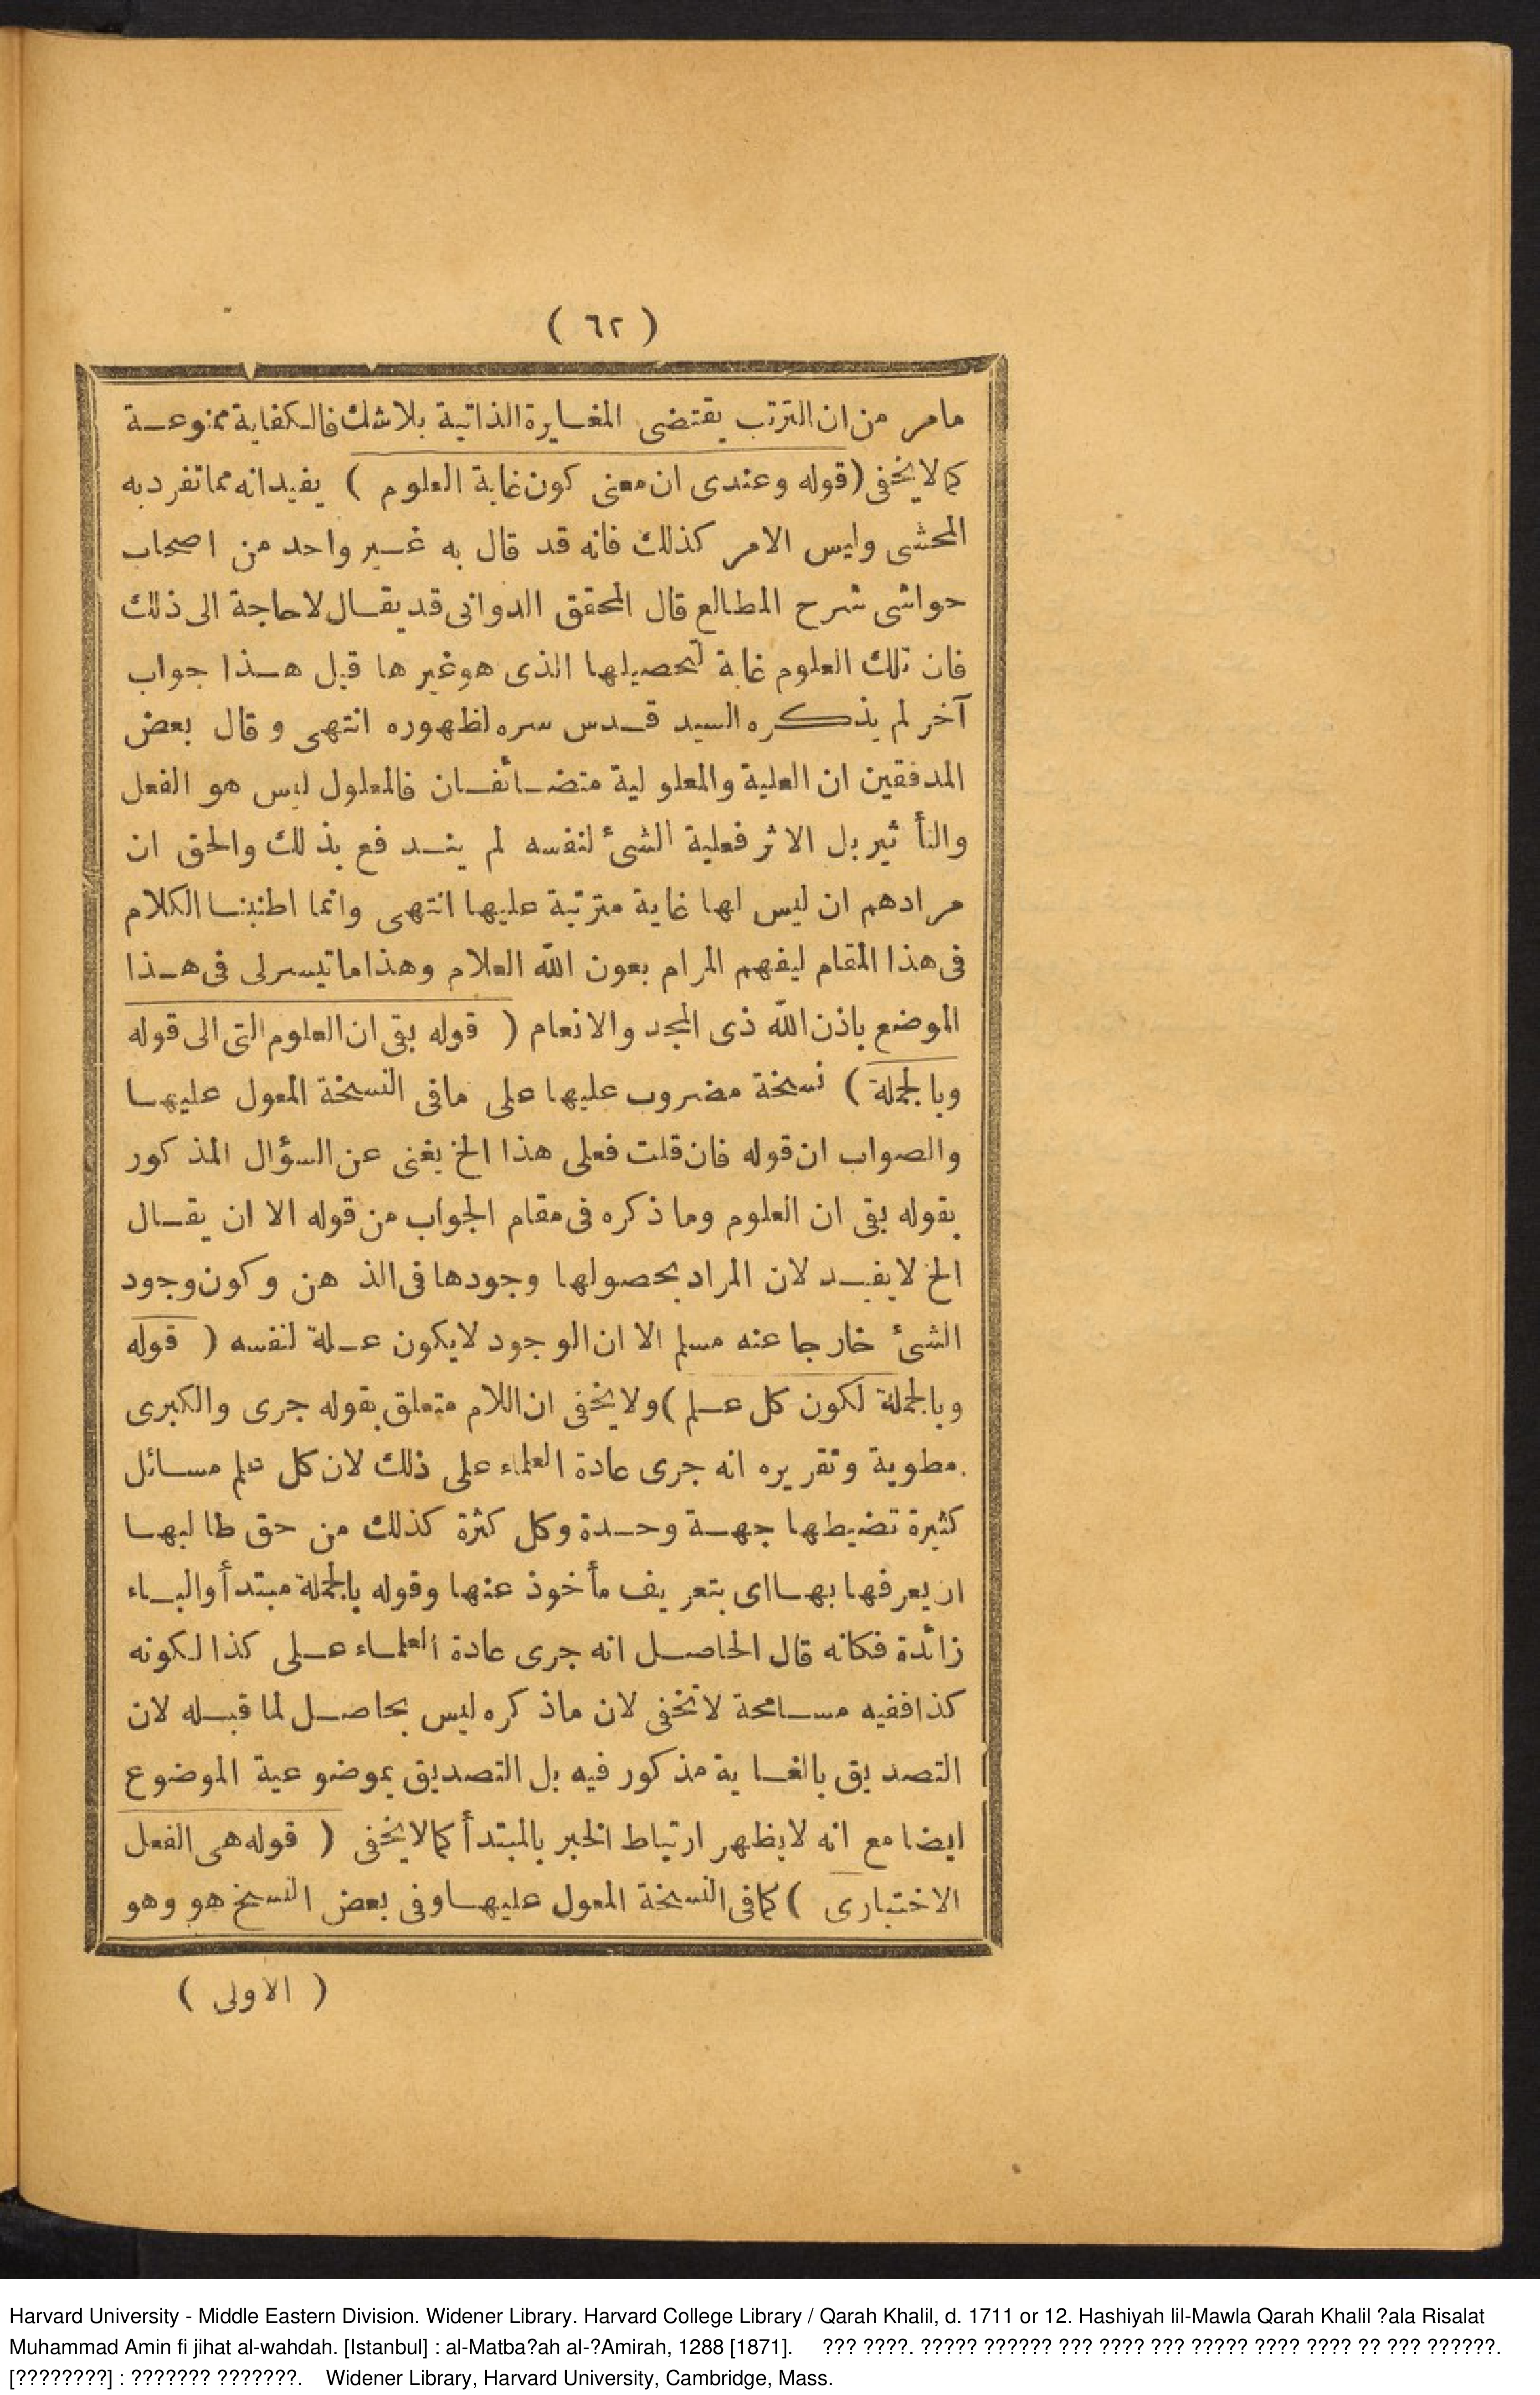 ( ٦٢ )
مامر من ان الترتب يقتضى المغايرة الذاتية بلاشك فالكفاية ممنوعة
كما لا يخفى (قوله وعندى ان معنى كون غاية العلوم ) يفيد انه مما تفرد به
المحشى وليس الامر كذلك فانه قد قال به غير واحد من اصحاب
حواشى شرح المطالع قال المحقق الدوانى قد يقال لا حاجة الى ذلك
فان تلك العلوم غاية لتحصيلها الذى هو غيرها قيل هذا جواب
آخر لم يذكره السيد قدس سره لظهوره انتهى و قال بعض
المدققين ان العلية والمعلولية متضائفان فالمعلول ليس هو الفعل
والتأثير بل الاثر فعلية الشئ لنفسه لم يندفع بذلك والحق ان
مرادهم ان ليس لها غاية مترتبة عليها انتهى وانما اطنبنا الكلام
فى هذا المقام ليفهم المرام بعون الله العلام وهذا ما تيسر لى فى هذا
الموضع باذن الله ذى المجد والانعام ( قوله بقى ان العلوم التى الى قوله
وبالجملة ) نسخة مضروب عليها على مافى النسخة المعول عليها
والصواب ان قوله فان قلت فعلى هذا الخ يغنى عن السؤال المذكور
بقوله بقى ان العلوم وما ذكره فى مقام الجواب من قوله الا ان يقال
الخ لا يفيد لان المراد بحصولها وجودها فى الذهن وكون وجود
الشئ خارجا عنه مسلم الا ان الوجود لا يكون علة لنفسه ( قوله
وبالجملة لكون كل علم ) ولا يخفى ان اللام متعلق بقوله جرى والكبرى
مطوية وتقريره انه جرى عادة العلماء على ذلك لان كل علم مسائل
كثيرة تضبطها جهة وحدة وكل كثرة كذلك من حق طالبها
ان يعرفها بها اى بتعريف مأخوذ عنها وقوله بالجملة مبتدأ والباء
زائدة فكانه قال الحاصل انه جرى عادة العلماء على كذا لكونه
كذا ففيه مسامحة لا تخفى لان ماذكره ليس بحاصل لما قبله لان
التصديق بالغاية مذكور فيه بل التصديق بموضوعية الموضوع
ايضا مع انه لا يظهر ارتباط الخبر بالمبتدأ كما لا يخفى ( قوله هى الفعل
الاختيارى ) كما فى النسخة المعول عليها وفى بعض النسخ هو وهو
( الاولى )
Harvard University - Middle Eastern Division. Widener Library. Harvard College Library / Qarah Khalil, d. 1711 or 12. Hashiyah lil-Mawla Qarah Khalil ?ala Risalat
Muhammad Amin fi jihat al-wahdah. [Istanbul] : al-Matba?ah al-?Amirah, 1288 [1871]. ??? ????. ????? ?????? ??? ???? ??? ????? ???? ???? ?? ??? ??????.
[????????] : ??????? ???????. Widener Library, Harvard University, Cambridge, Mass.